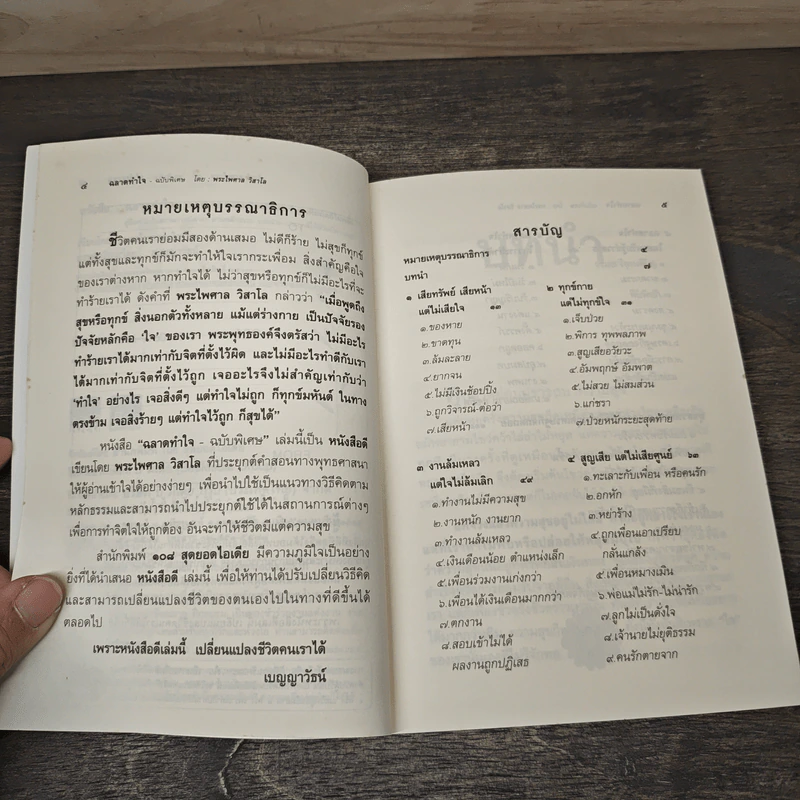 ๔ ฉลาดทำใจ - ฉบับพิเศษ โดย : พระไพศาล วิสาโล
หมายเหตุบรรณาธิการ
ชีวิตคนเราย่อมมีสองด้านเสมอ ไม่ดีก็ร้าย ไม่สุขก็ทุกข์
แต่ทั้งสุขและทุกข์ก็มักจะทำให้ใจเรากระเพื่อม สิ่งสำคัญคือใจ
ของเราต่างหาก หากทำใจได้ ไม่ว่าสุขหรือทุกข์ก็ไม่มีอะไรที่จะ
ทำร้ายเราได้ ดังคำที่ พระไพศาล วิสาโล กล่าวว่า “เมื่อพูดถึง
สุขหรือทุกข์ สิ่งนอกตัวทั้งหลาย แม้แต่ร่างกาย เป็นปัจจัยรอง
ปัจจัยหลักคือ ‘ใจ’ ของเรา พระพุทธองค์จึงตรัสว่า ไม่มีอะไร
ทำร้ายเราได้มากเท่ากับจิตที่ตั้งไว้ผิด และไม่มีอะไรทำดีกับเรา
ได้มากเท่ากับจิตที่ตั้งไว้ถูก เจออะไรจึงไม่สำคัญเท่ากับว่า
‘ทำใจ’ อย่างไร เจอสิ่งดีๆ แต่ทำใจไม่ถูก ก็ทุกข์มหันต์ ในทาง
ตรงข้าม เจอสิ่งร้ายๆ แต่ทำใจไว้ถูก ก็สุขได้”
หนังสือ “ฉลาดทำใจ - ฉบับพิเศษ” เล่มนี้เป็น หนังสือดี
เขียนโดย พระไพศาล วิสาโล ที่ประยุกต์คำสอนทางพุทธศาสนา
ให้ผู้อ่านเข้าใจได้อย่างง่ายๆ เพื่อนำไปใช้เป็นแนวทางวิธีคิดตาม
หลักธรรมและสามารถนำไปประยุกต์ใช้ได้ในสถานการณ์ต่างๆ
เพื่อการทำจิตใจให้ถูกต้อง อันจะทำให้ชีวิตมีแต่ความสุข
สำนักพิมพ์ ๑๐๘ สุดยอดไอเดีย มีความภูมิใจเป็นอย่าง
ยิ่งที่ได้นำเสนอ หนังสือดี เล่มนี้ เพื่อให้ท่านได้ปรับเปลี่ยนวิธีคิด
และสามารถเปลี่ยนแปลงชีวิตของตนเองไปในทางที่ดีขึ้นได้
ตลอดไป
เพราะหนังสือดีเล่มนี้ เปลี่ยนแปลงชีวิตคนเราได้
เบญญาวัธน์
๕
สารบัญ
หมายเหตุบรรณาธิการ ๔
บทนำ ๗
๑ เสียทรัพย์ เสียหน้า
แต่ไม่เสียใจ ๑๓
๑.ของหาย
๒.ขาดทุน
๓.ล้มละลาย
๔.ยากจน
๕.ไม่มีเงินช้อปปิ้ง
๖.ถูกวิจารณ์-ต่อว่า
๗.เสียหน้า
๒ ทุกข์กาย
แต่ไม่ทุกข์ใจ ๓๑
๑.เจ็บป่วย
๒.พิการ ทุพพลภาพ
๓.สูญเสียอวัยวะ
๔.อัมพฤกษ์ อัมพาต
๕.ไม่สวย ไม่สมส่วน
๖.แก่ชรา
๗.ป่วยหนักระยะสุดท้าย
๓ งานล้มเหลว
แต่ใจไม่ล้มเลิก ๔๙
๑.ทำงานไม่มีความสุข
๒.งานหนัก งานยาก
๓.ทำงานล้มเหลว
๔.เงินเดือนน้อย ตำแหน่งเล็ก
๕.เพื่อนร่วมงานเก่งกว่า
๖.เพื่อนได้เงินเดือนมากกว่า
๗.ตกงาน
๘.สอบเข้าไม่ได้
ผลงานถูกปฏิเสธ
๔ สูญเสีย แต่ไม่เสียศูนย์ ๖๓
๑.ทะเลาะกับเพื่อน หรือคนรัก
๒.อกหัก
๓.หย่าร้าง
๔.ถูกเพื่อนเอาเปรียบ
กลั่นแกล้ง
๕.เพื่อนหมางเมิน
๖.พ่อแม่ไม่รัก-ไม่น่ารัก
๗.ลูกไม่เป็นดั่งใจ
๘.เจ้านายไม่ยุติธรรม
๙.คนรักตายจาก